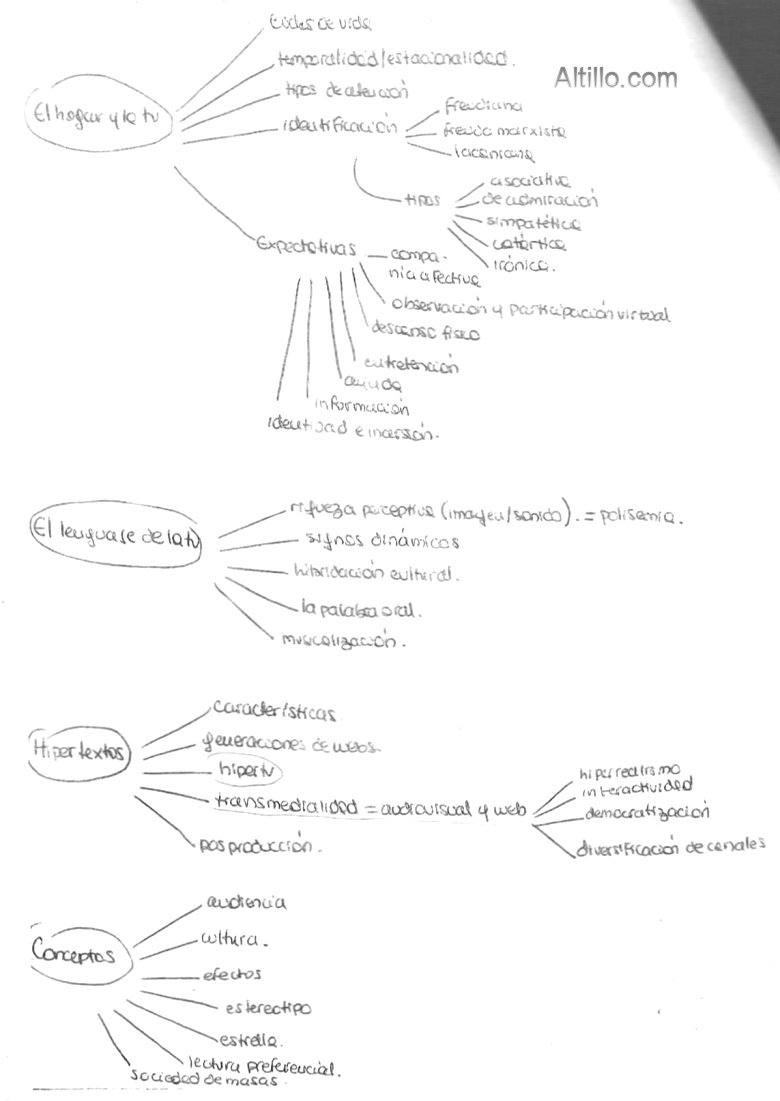 Ciclos de vida
temporalidad/estacionalidad.
Altillo.com
tipos de atención
El hogar y la tv
identificación
freudiana
freudo marxista
lacaniana
tipos
asociativa
de admiración
simpatética
catártica
irónica.
Expectativas
compa-
ñia afectiva
observación y participación virtual
descanso físico
entretención
ayuda
información
identidad e inserción.
El lenguaje de la tv
riqueza perceptiva (imagen/sonido). = polisemia.
signos dinámicos
hibridación cultural.
la palabra oral.
musicalización.
Hipertextos
características
generaciones de webs.
hipertv
transmedialidad = audiovisual y web
hiperrealismo
interactividad
democratización
diversificación de canales
posproducción.
Conceptos
audiencia
cultura.
efectos
estereotipo
estrella.
lectura preferencial.
sociedad de masas.